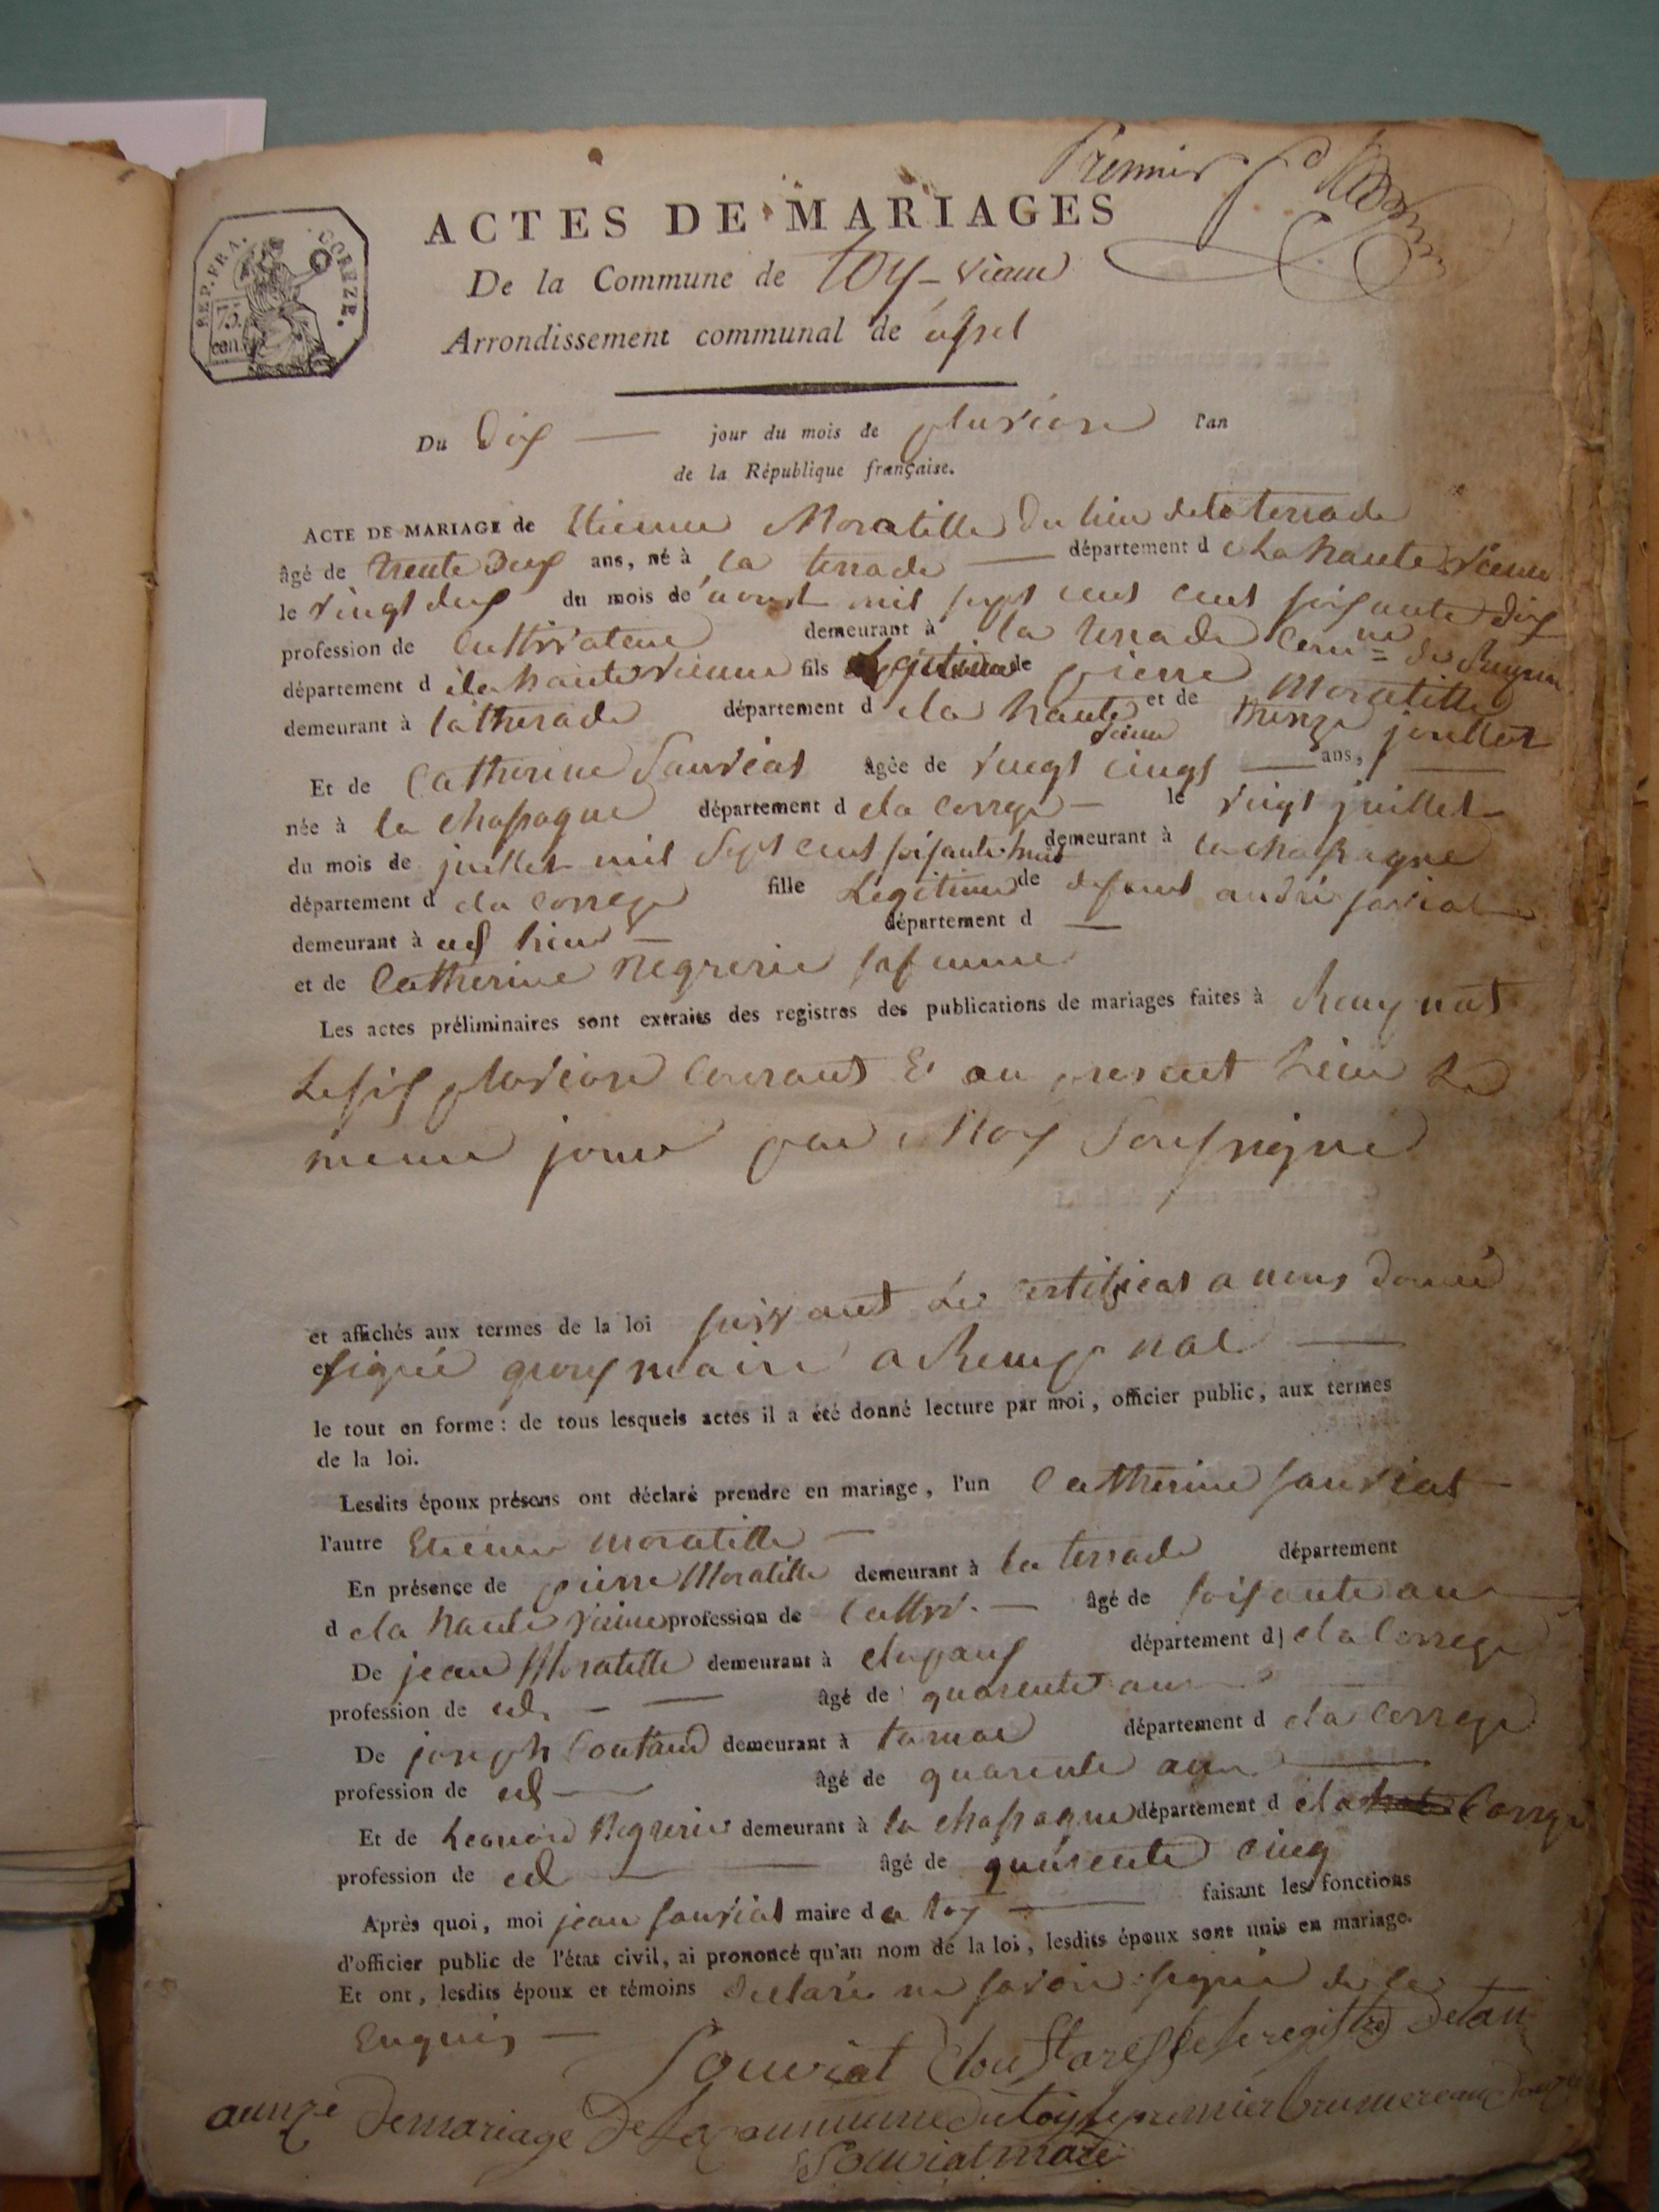 Premier
ACTES DE MARIAGES
REP. FRA. CORREZE.
75. cen.
De la Commune de toy-viam
Arrondissement communal de ussel
Du dix — jour du mois de pluviose l'an
de la République française.
ACTE DE MARIAGE de Etienne Moratille du lieu de la terrade
âgé de trente deux ans, né à la terrade — département d e la haute vienne
le vingt deux du mois de aoust mil sept cens cent soixante dix
profession de cultivateur demeurant à la terrade
département d e la haute vienne fils legitime de pierre Moratille
demeurant à la therade département d e la haute vienne et de
Et de Catherine Sauviat âgée de vingt cinq — ans,
née à la chassagne département d e la correze — le vingt juillet
du mois de juillet mil sept cent soixante huit demeurant à la chassagne
département d e la correze fille Legitime de defunt andré sauviat
demeurant à lieu — département d —
et de Catherine negrerie sa femme
Les actes préliminaires sont extraits des registres des publications de mariages faites à Remp nat
Le six pluviose Courant & au present Lieu Le
meme jour par Moy Soussigné
et affichés aux termes de la loi suivant Le certificat a nous donné
signé maire a Remp nat —
le tout en forme : de tous lesquels actes il a été donné lecture par moi, officier public, aux termes
de la loi.
Lesdits époux présens ont déclaré prendre en mariage, l'un Catherine sauviat —
l'autre Etienne moratille —
En présence de pierre Moratille demeurant à la terrade département
d e la haute vienne profession de Cultiv. — âgé de soixante an
De jean Moratille demeurant à département d e la Correze
profession de id. — âgé de quarente an
De joseph Coutaud demeurant à tarnac département d e la Correze
profession de id — âgé de quarente an
Et de Leonard Negrerie demeurant à la chassagne département d e la Correze
profession de id — âgé de quarente cinq
Après quoi, moi jean sauviat maire d e toy — faisant les fonctions
d'officier public de l'état civil, ai prononcé qu'au nom de la loi, lesdits époux sont unis en mariage.
Et ont, lesdits époux et témoins declaré ne savoir signé de ce
Enquis —
Souviat Clou et aresté le registre de l'an
aunze de mariage De La coummune du toy le premier brumere an douze
Souviat maire